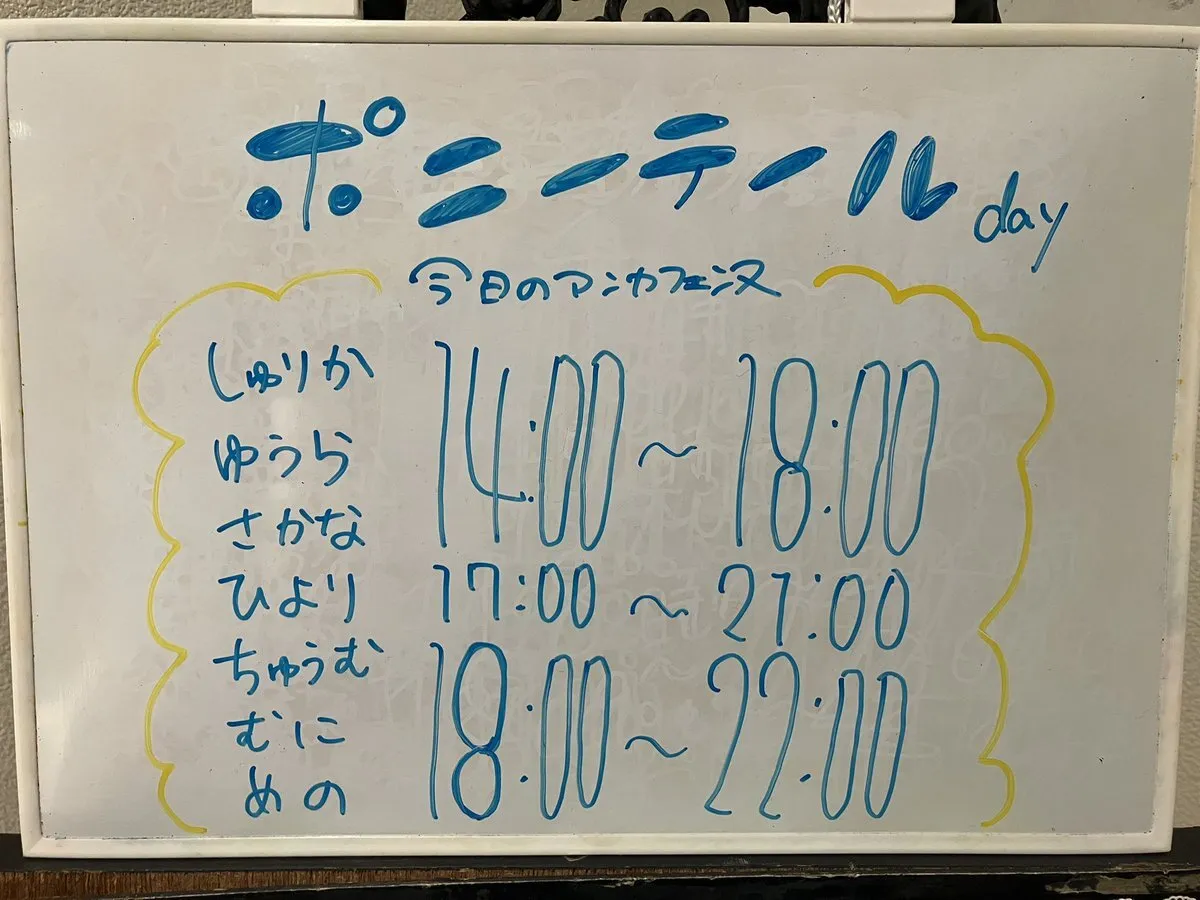 ポニーテール day
今日のアンカフェンヌ
しゅりか
ゆうら
さかな
14:00～18:00
ひより 17:00～21:00
ちゅうむ
むに
めの
18:00～22:00